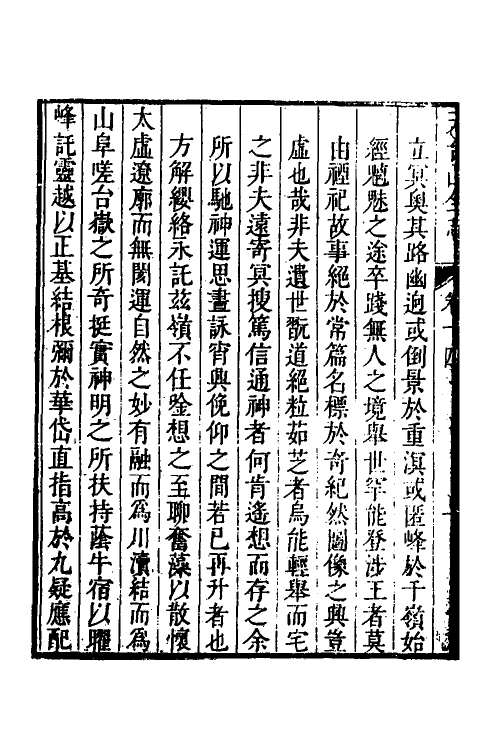 天台山全志 卷十四
立冥奧其路幽逈或倒景於重溟或匿峰於千嶺始
經魑魅之途卒踐無人之境舉世罕能登涉王者莫
由禋祀故事絕於常篇名標於奇紀然圖像之興豈
虛也哉非夫遺世翫道絕粒茹芝者烏能輕舉而宅
之非夫遠寄冥搜篤信通神者何肯遙想而存之余
所以馳神運思晝詠宵興俛仰之間若已再升者也
方解纓絡永託茲嶺不任唫想之至聊奮藻以散懷
太虛遼廓而無閡運自然之妙有融而爲川瀆結而爲
山阜嗟台嶽之所奇挺實神明之所扶持蔭牛宿以曜
峰託靈越以正基結根彌於華岱直指高於九疑應配